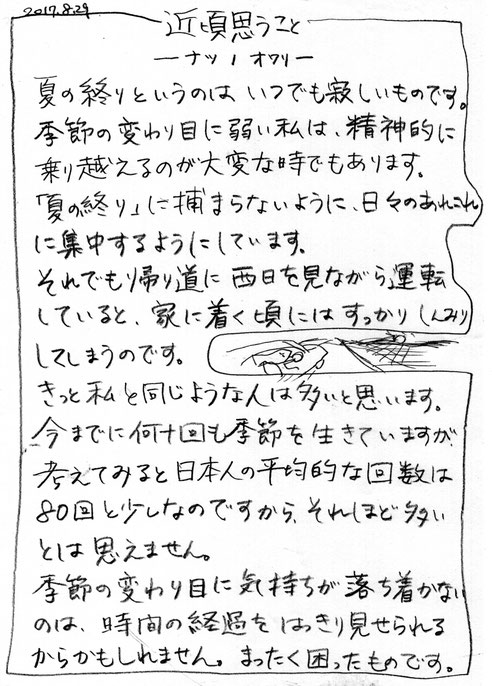 2017.8.29
近頃思うこと
ーナツノオワリー
夏の終りというのは、いつでも寂しいものです。
季節の変わり目に弱い私は、精神的に
乗り越えるのが大変な時でもあります。
「夏の終り」に捕まらないように、日々のあれこれ
に集中するようにしています。
それでもり帰り道に西日を見ながら運転
していると、家に着く頃にはすっかりしんみり
してしまうのです。
きっと私と同じような人は多いと思います。
今までに何十回も季節を生きていますが、
考えてみると日本人の平均的な回数は
80回と少しなのですから、それほど多い
とは思えません。
季節の変わり目に気持ちが落ち着かない
のは、時間の経過をはっきり見せられる
からかもしれません。まったく困ったものです。